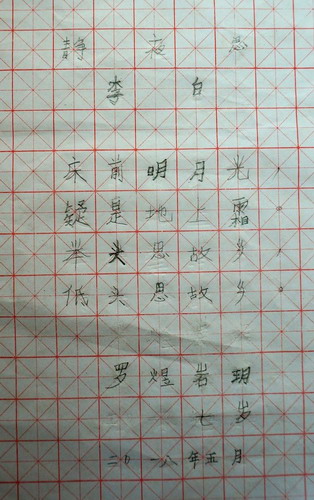 静夜思
李白
床前明月光，
疑是地上霜。
举头思故乡，
低头思故乡。
罗煜岩玥
七岁
二〇一八年五月